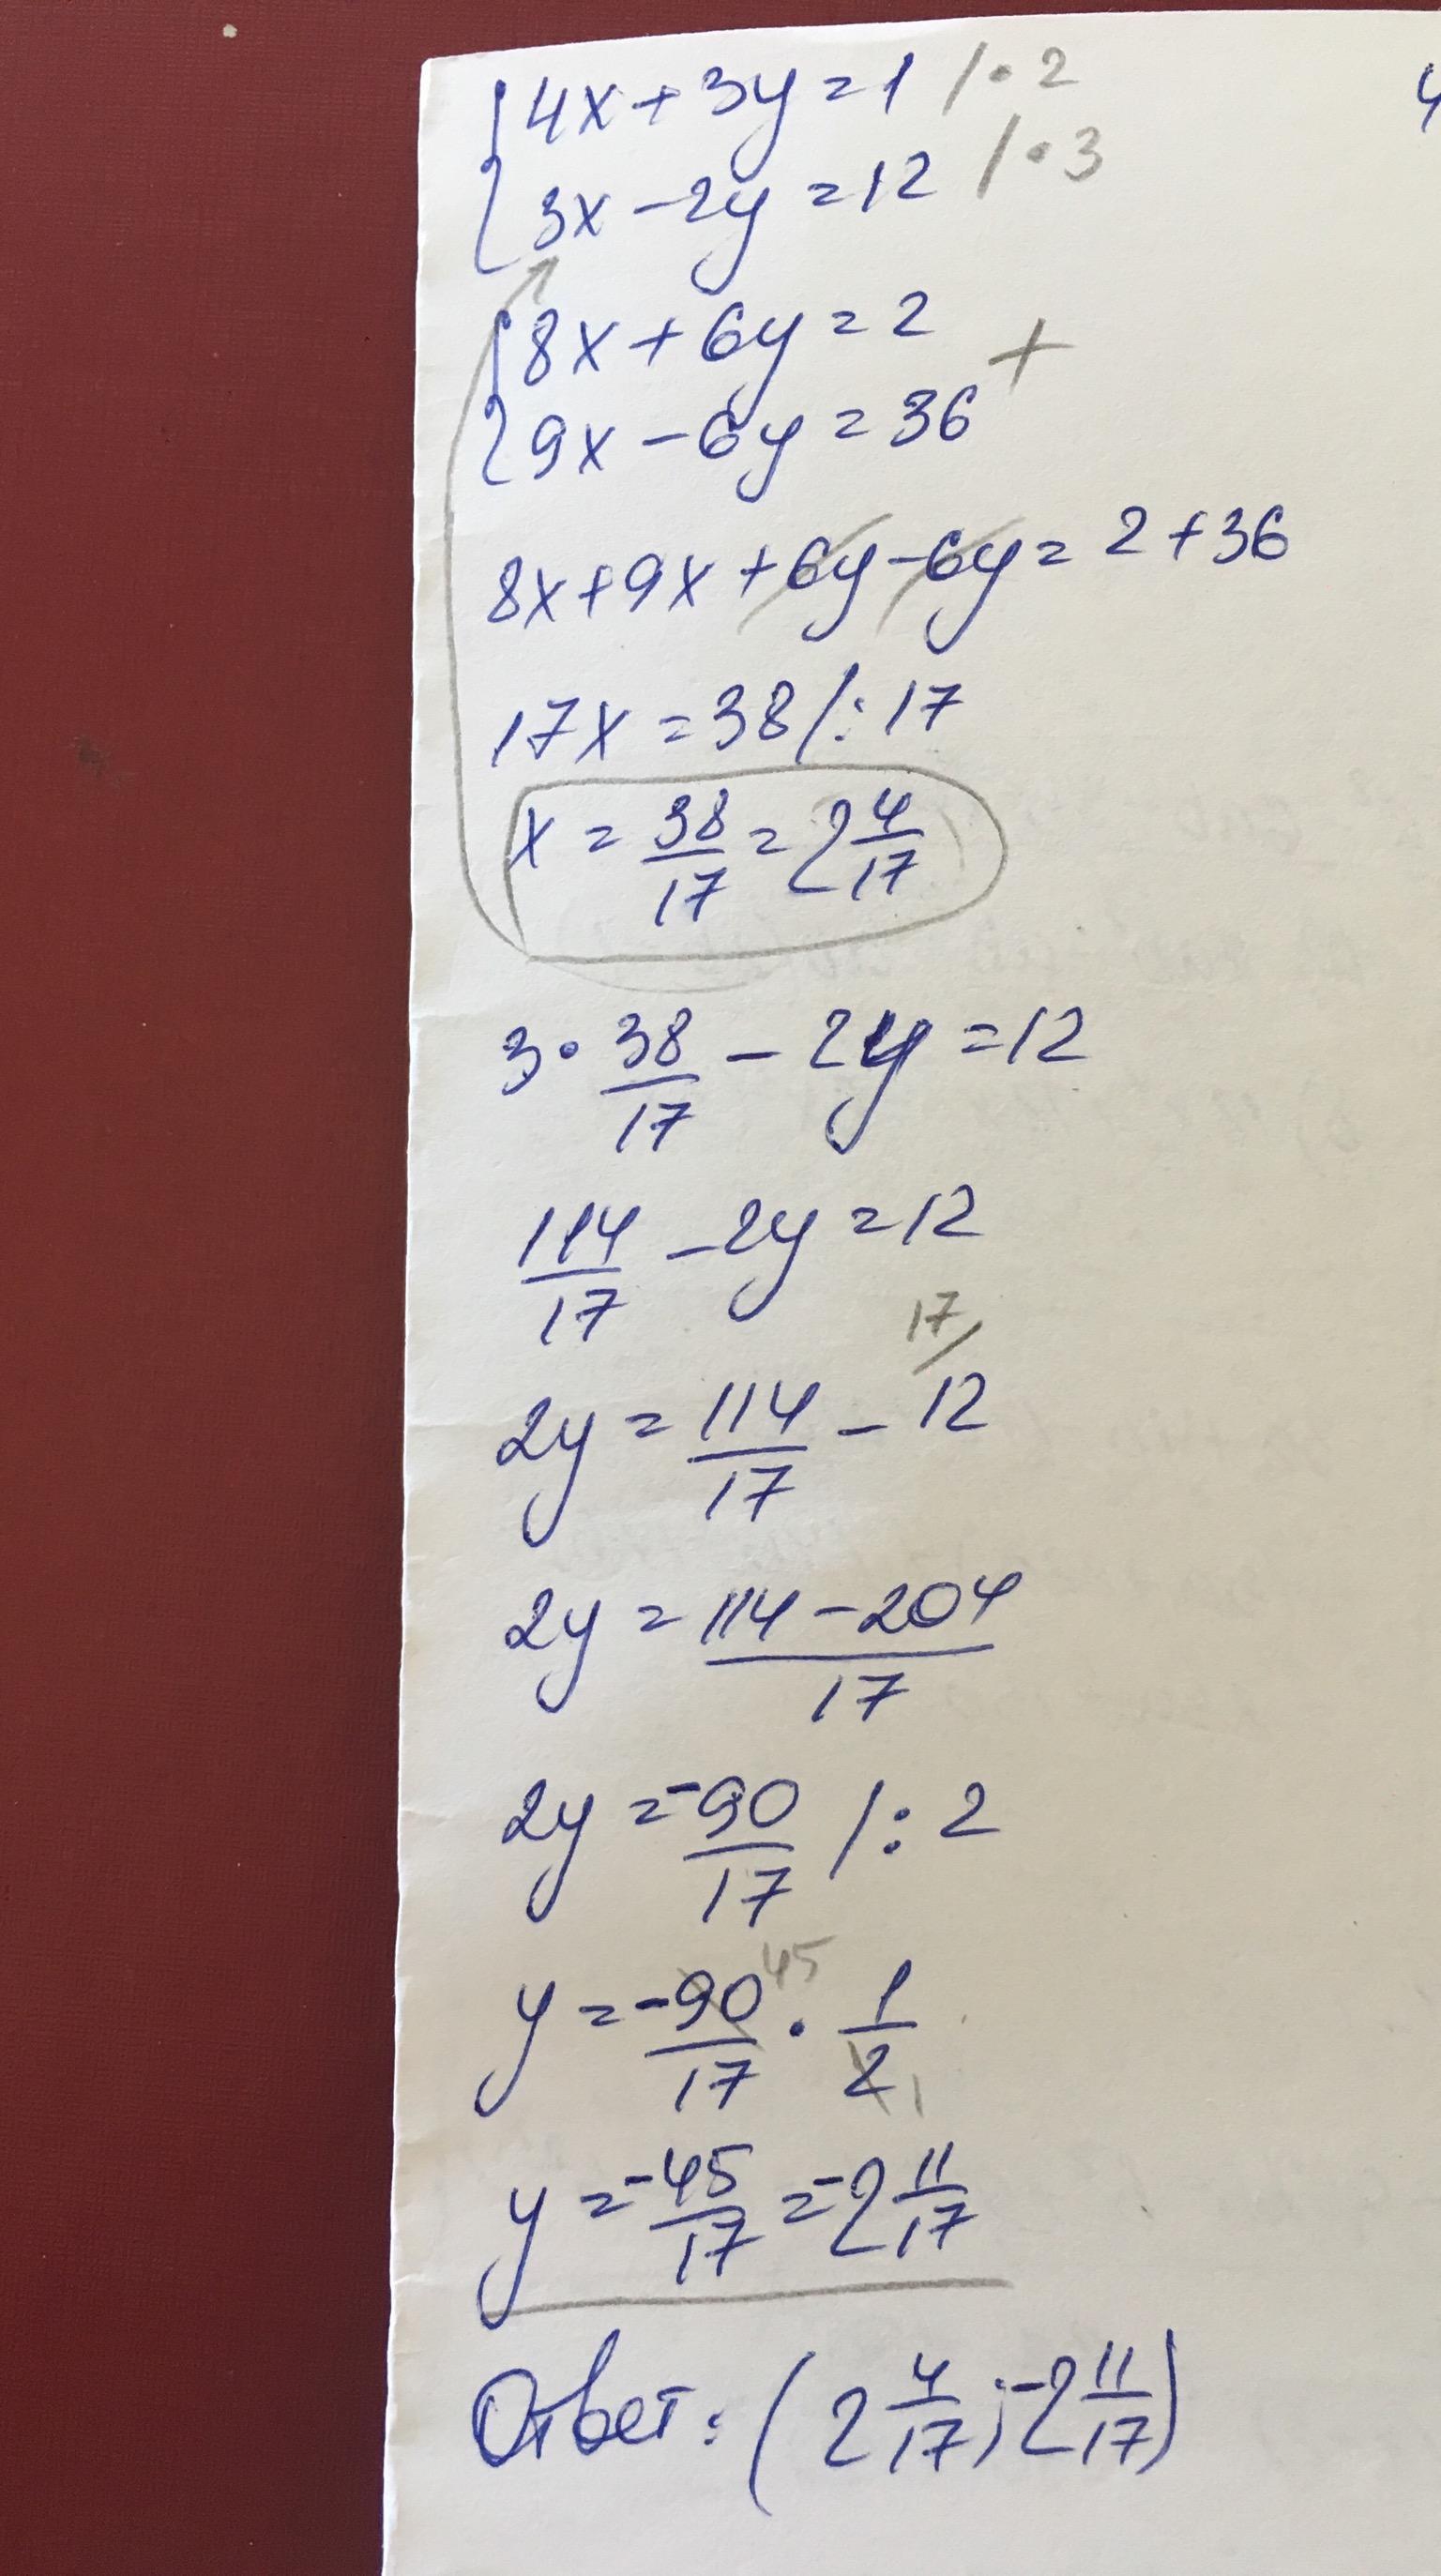 {4x+3y=1 /•2
{3x-2y=12 /•3
{8x+6y=2 +
{9x-6y=36
8x+9x+6y-6y=2+36
17x=38/:17
x=38/17=2 4/17
3•38/17-2y=12
114/17-2y=12
17/
2y=114/17-12
2y=(114-204)/17
2y=-90/17 /:2
45
y=-90/17•1/2
1
y=-45/17=-2 11/17
Ответ: (2 4/17;-2 11/17)